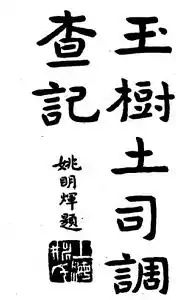 玉樹土司調
查記
姚明煇題